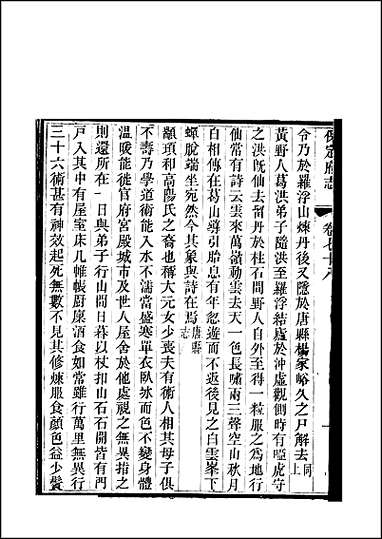 保定府志 卷七十八
令乃於羅浮山煉丹後又隱於唐縣楊家峪久之尸解去同上
黃野人葛洪弟子隨洪至羅浮結廬於沖虛觀側時有啞虎守
之洪旣仙去留丹於柱石間野人自外至得一粒服之為地行
仙常有詩云雲來萬嶺動雲去天一色長嘯兩三聲空山秋月
白相傳在葛山導引胎息有年忽遊而不返後見之白雲峯下
蟬脫端坐宛然其象與詩在焉唐縣志
顓頊和高陽氏之裔也稱大元女少喪夫有術人相其母子俱
不壽乃學道術能入水不濡當盛寒單衣臥冰而色不變身體
溫暖能徙官府宮殿城市及世人屋舍於他處視之無異指之
則還所在一日與弟子行山間日暮以杖扣山石石開皆有門
戸入其中有屋室床几帷帳廚廩酒食如常雖行萬里無異行
三十六術甚有神效起死無數不見其修煉服食顏色益少鬓